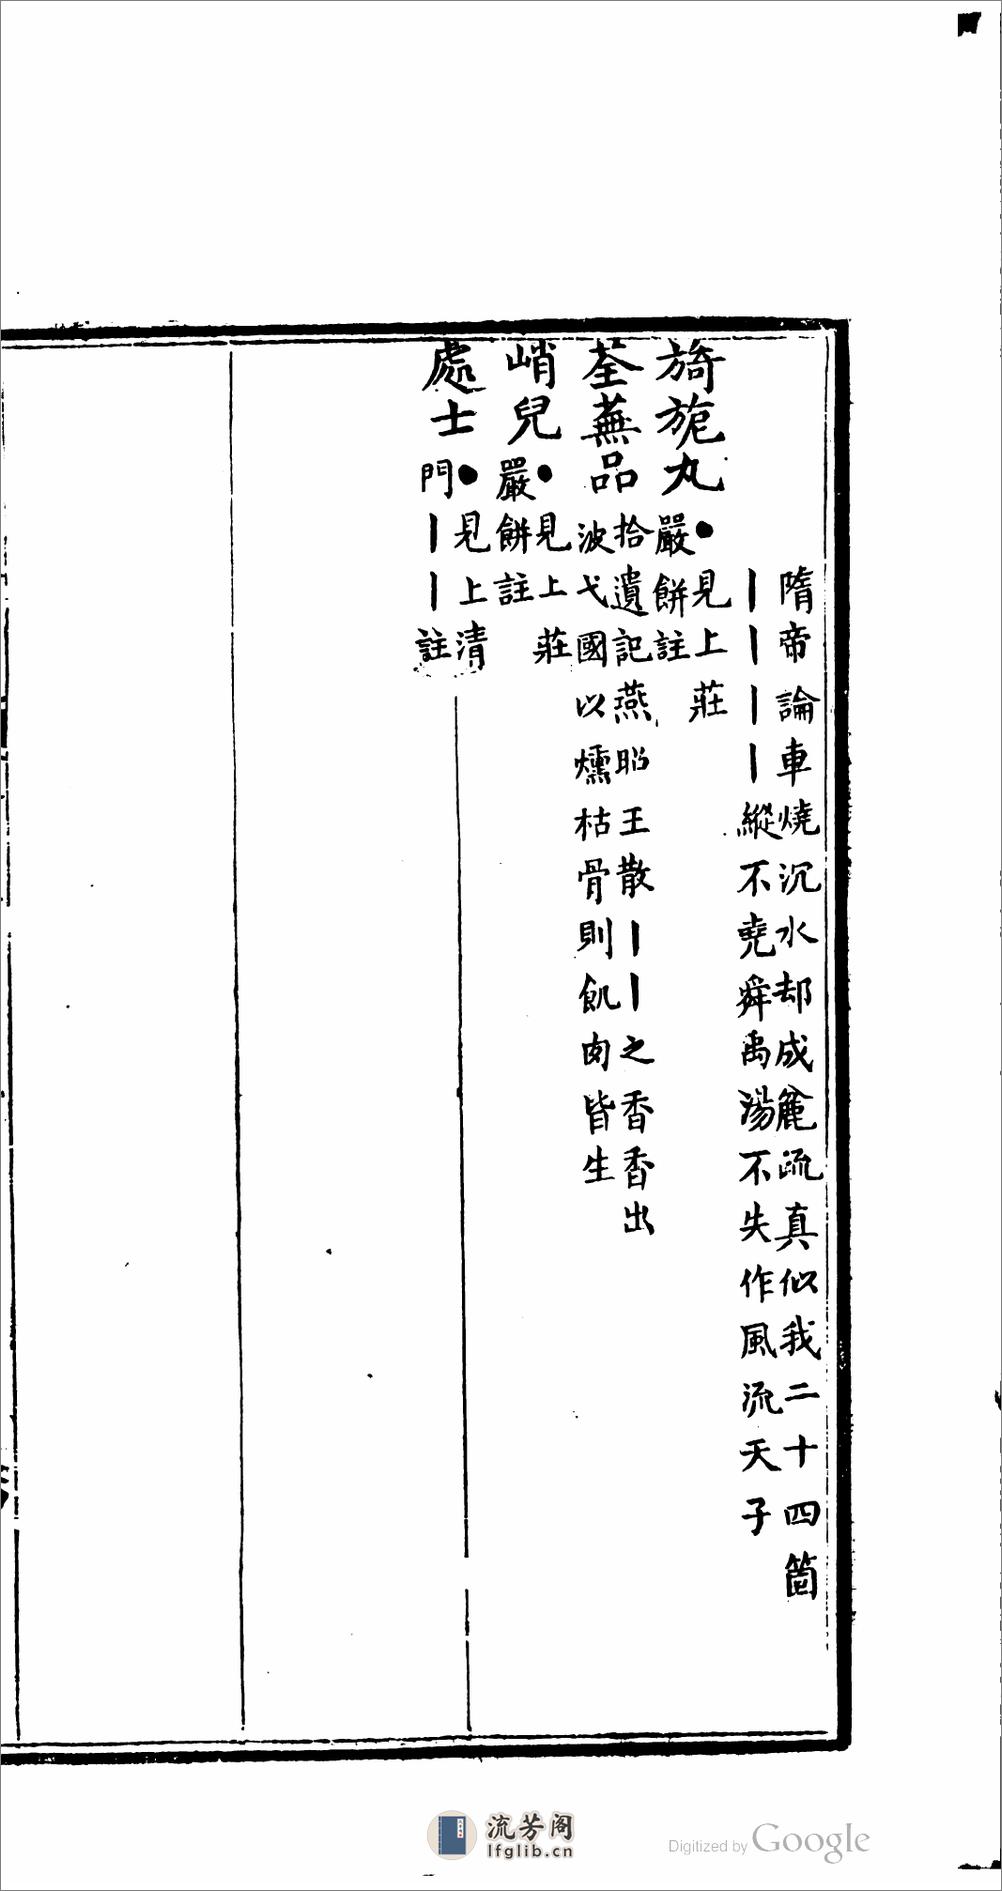 隋帝論車燒沉水却成麄疏真似我二十四箇
丨丨丨丨縱不堯舜禹湯不失作風流天子
旖旎丸●見上莊
嚴餅註
荃蕪品拾遺記燕昭王散丨丨之香香出
波弋國以燻枯骨則飢肉皆生
峭兒●見上莊
嚴餅註
處士●見上清
門丨丨註
流芳阁
lfglib.cn
Digitized by Google